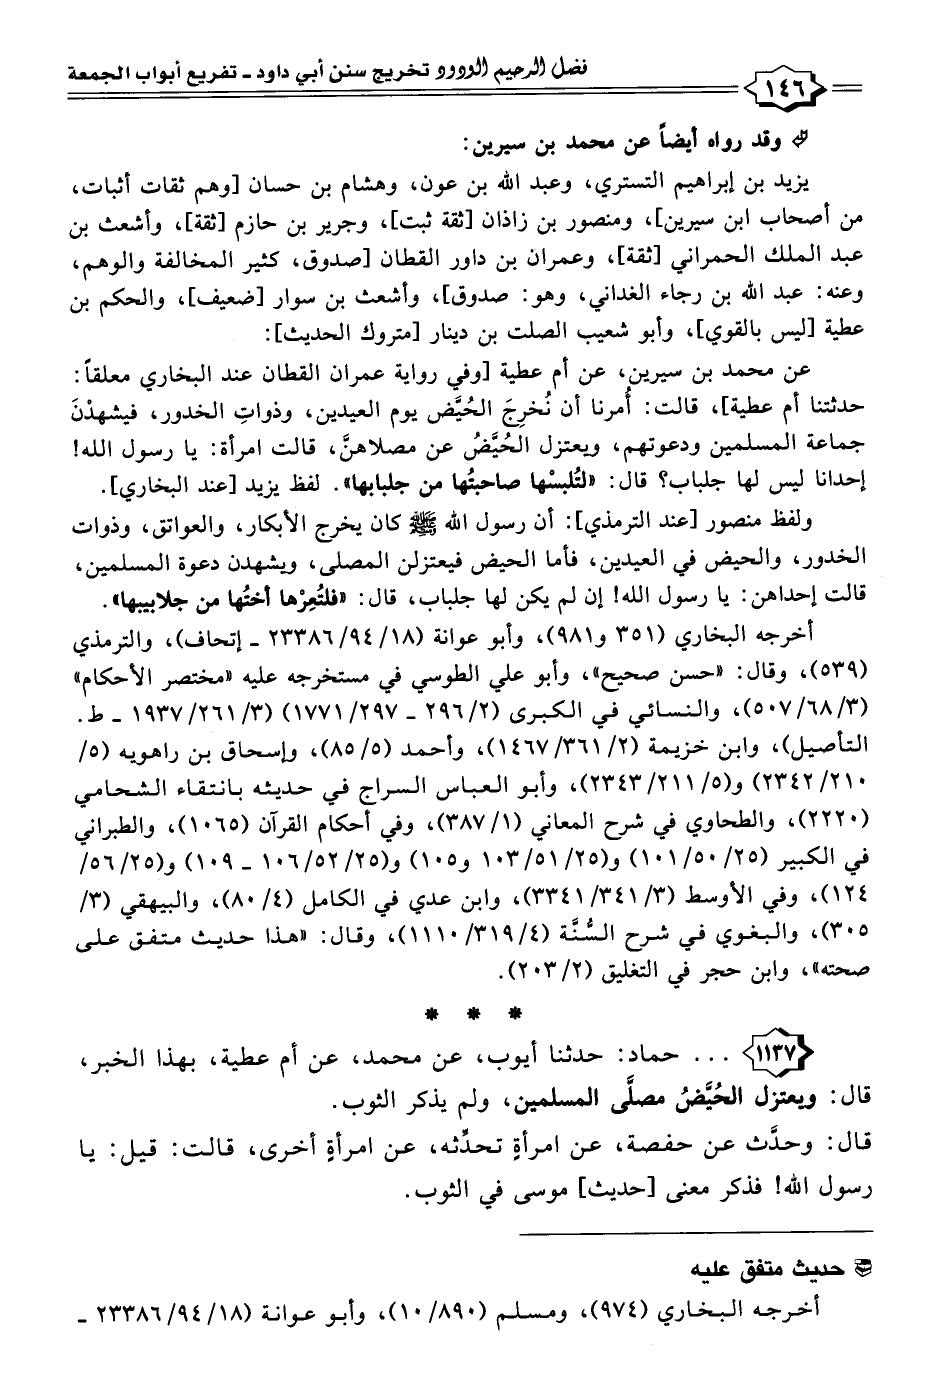 فضل الرحيم الودود تخريج سنن أبي داود ـ تفريع أبواب الجمعة
١٤٦
وقد رواه أيضاً عن محمد بن سيرين:
يزيد بن إبراهيم التستري، وعبد الله بن عون، وهشام بن حسان [وهم ثقات أثبات،
من أصحاب ابن سيرين]، ومنصور بن زاذان [ثقة ثبت]، وجرير بن حازم [ثقة]، وأشعث بن
عبد الملك الحمراني [ثقة]، وعمران بن داور القطان [صدوق، كثير المخالفة والوهم،
وعنه: عبد الله بن رجاء الغداني، وهو: صدوق]، وأشعث بن سوار [ضعيف]، والحكم بن
عطية [ليس بالقوي]، وأبو شعيب الصلت بن دينار [متروك الحديث]:
عن محمد بن سيرين، عن أم عطية [وفي رواية عمران القطان عند البخاري معلقاً:
حدثتنا أم عطية]، قالت: أُمرنا أن نُخرِجَ الحُيَّض يوم العيدين، وذواتِ الخدور، فيشهدْنَ
جماعة المسلمين ودعوتهم، ويعتزل الحُيَّضُ عن مصلاهنَّ، قالت امرأة: يا رسول الله!
إحدانا ليس لها جلباب؟ قال: «لتُلبسْها صاحبتُها من جلبابها». لفظ يزيد [عند البخاري].
ولفظ منصور [عند الترمذي]: أن رسول الله ﷺ كان يخرج الأبكار، والعواتق، وذوات
الخدور، والحيض في العيدين، فأما الحيض فيعتزلن المصلى، ويشهدن دعوة المسلمين،
قالت إحداهن: يا رسول الله! إن لم يكن لها جلباب، قال: «فلتُعِرْها أختُها من جلابيبها».
أخرجه البخاري (٣٥١ و٩٨١)، وأبو عوانة (١٨/ ٩٤/ ٢٣٣٨٦ ـ إتحاف)، والترمذي
(٥٣٩)، وقال: «حسن صحيح»، وأبو علي الطوسي في مستخرجه عليه «مختصر الأحكام»
(٣/ ٦٨/ ٥٠٧)، والنسائي في الكبرى (٢/ ٢٩٦ ـ ٢٩٧/ ١٧٧١) (٣/ ٢٦١/ ١٩٣٧ ـ ط.
التأصيل)، وابن خزيمة (٢/ ٣٦١/ ١٤٦٧)، وأحمد (٥/ ٨٥)، وإسحاق بن راهويه (٥/
٢١٠/ ٢٣٤٢) و(٥/ ٢١١/ ٢٣٤٣)، وأبو العباس السراج في حديثه بانتقاء الشحامي
(٢٢٢٠)، والطحاوي في شرح المعاني (١/ ٣٨٧)، وفي أحكام القرآن (١٠٦٥)، والطبراني
في الكبير (٢٥/ ٥٠/ ١٠١) و(٢٥/ ٥١/ ١٠٣ و١٠٥) و(٢٥/ ٥٢/ ١٠٦ ـ ١٠٩) و(٢٥/ ٥٦/
١٢٤)، وفي الأوسط (٣/ ٣٤١/ ٣٣٤١)، وابن عدي في الكامل (٤/ ٨٠)، والبيهقي (٣/
٣٠٥)، والبغوي في شرح السُّنَّة (٤/ ٣١٩/ ١١١٠)، وقال: «هذا حديث متفق على
صحته»، وابن حجر في التغليق (٢/ ٢٠٣).
* * *
١١٣٧ ... حماد: حدثنا أيوب، عن محمد، عن أم عطية، بهذا الخبر،
قال: ويعتزل الحُيَّضُ مصلَّى المسلمين، ولم يذكر الثوب.
قال: وحدَّث عن حفصة، عن امرأةٍ تحدِّثه، عن امرأةٍ أخرى، قالت: قيل: يا
رسول الله! فذكر معنى [حديث] موسى في الثوب.
حديث متفق عليه
أخرجه البخاري (٩٧٤)، ومسلم (١٠/٨٩٠)، وأبو عوانة (١٨/ ٩٤/ ٢٣٣٨٦ ـ